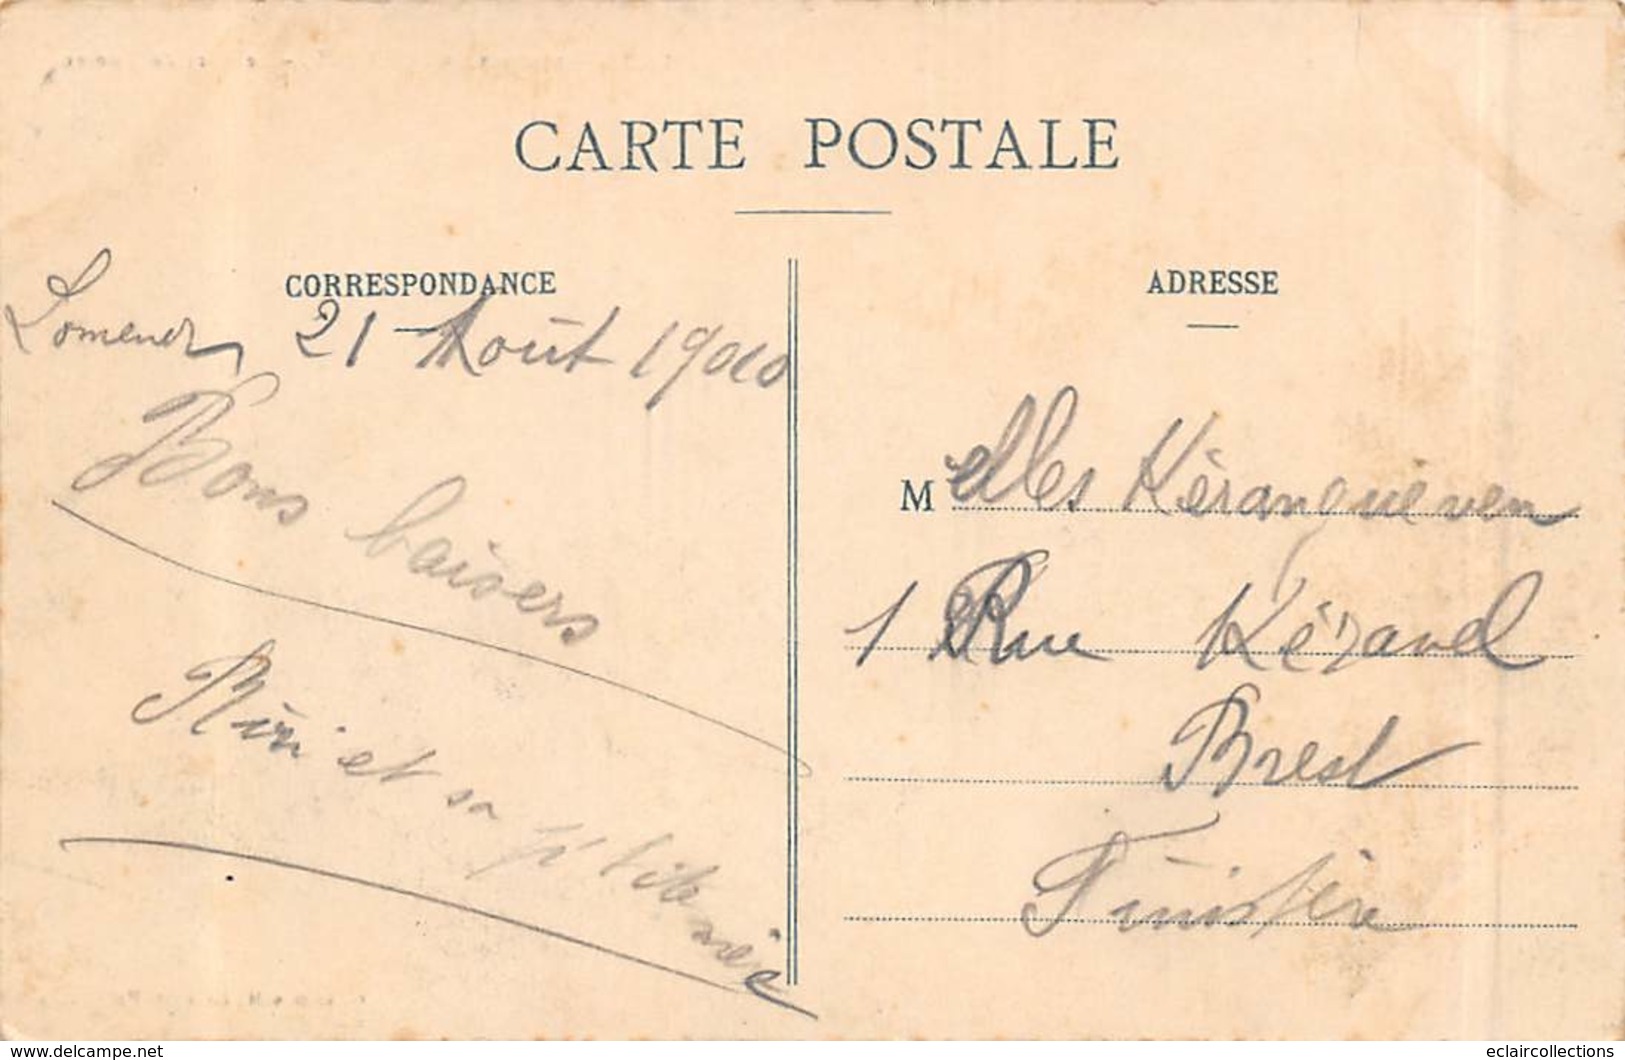 CARTE POSTALE
CORRESPONDANCE
Lomener, 21 Août 1910
Bons baisers
Mimi et sa p'tite
ADRESSE
Melles Kéranguéven
1 Rue Kéravel
Brest
Finistère
eclaircollections
www.delcampe.net